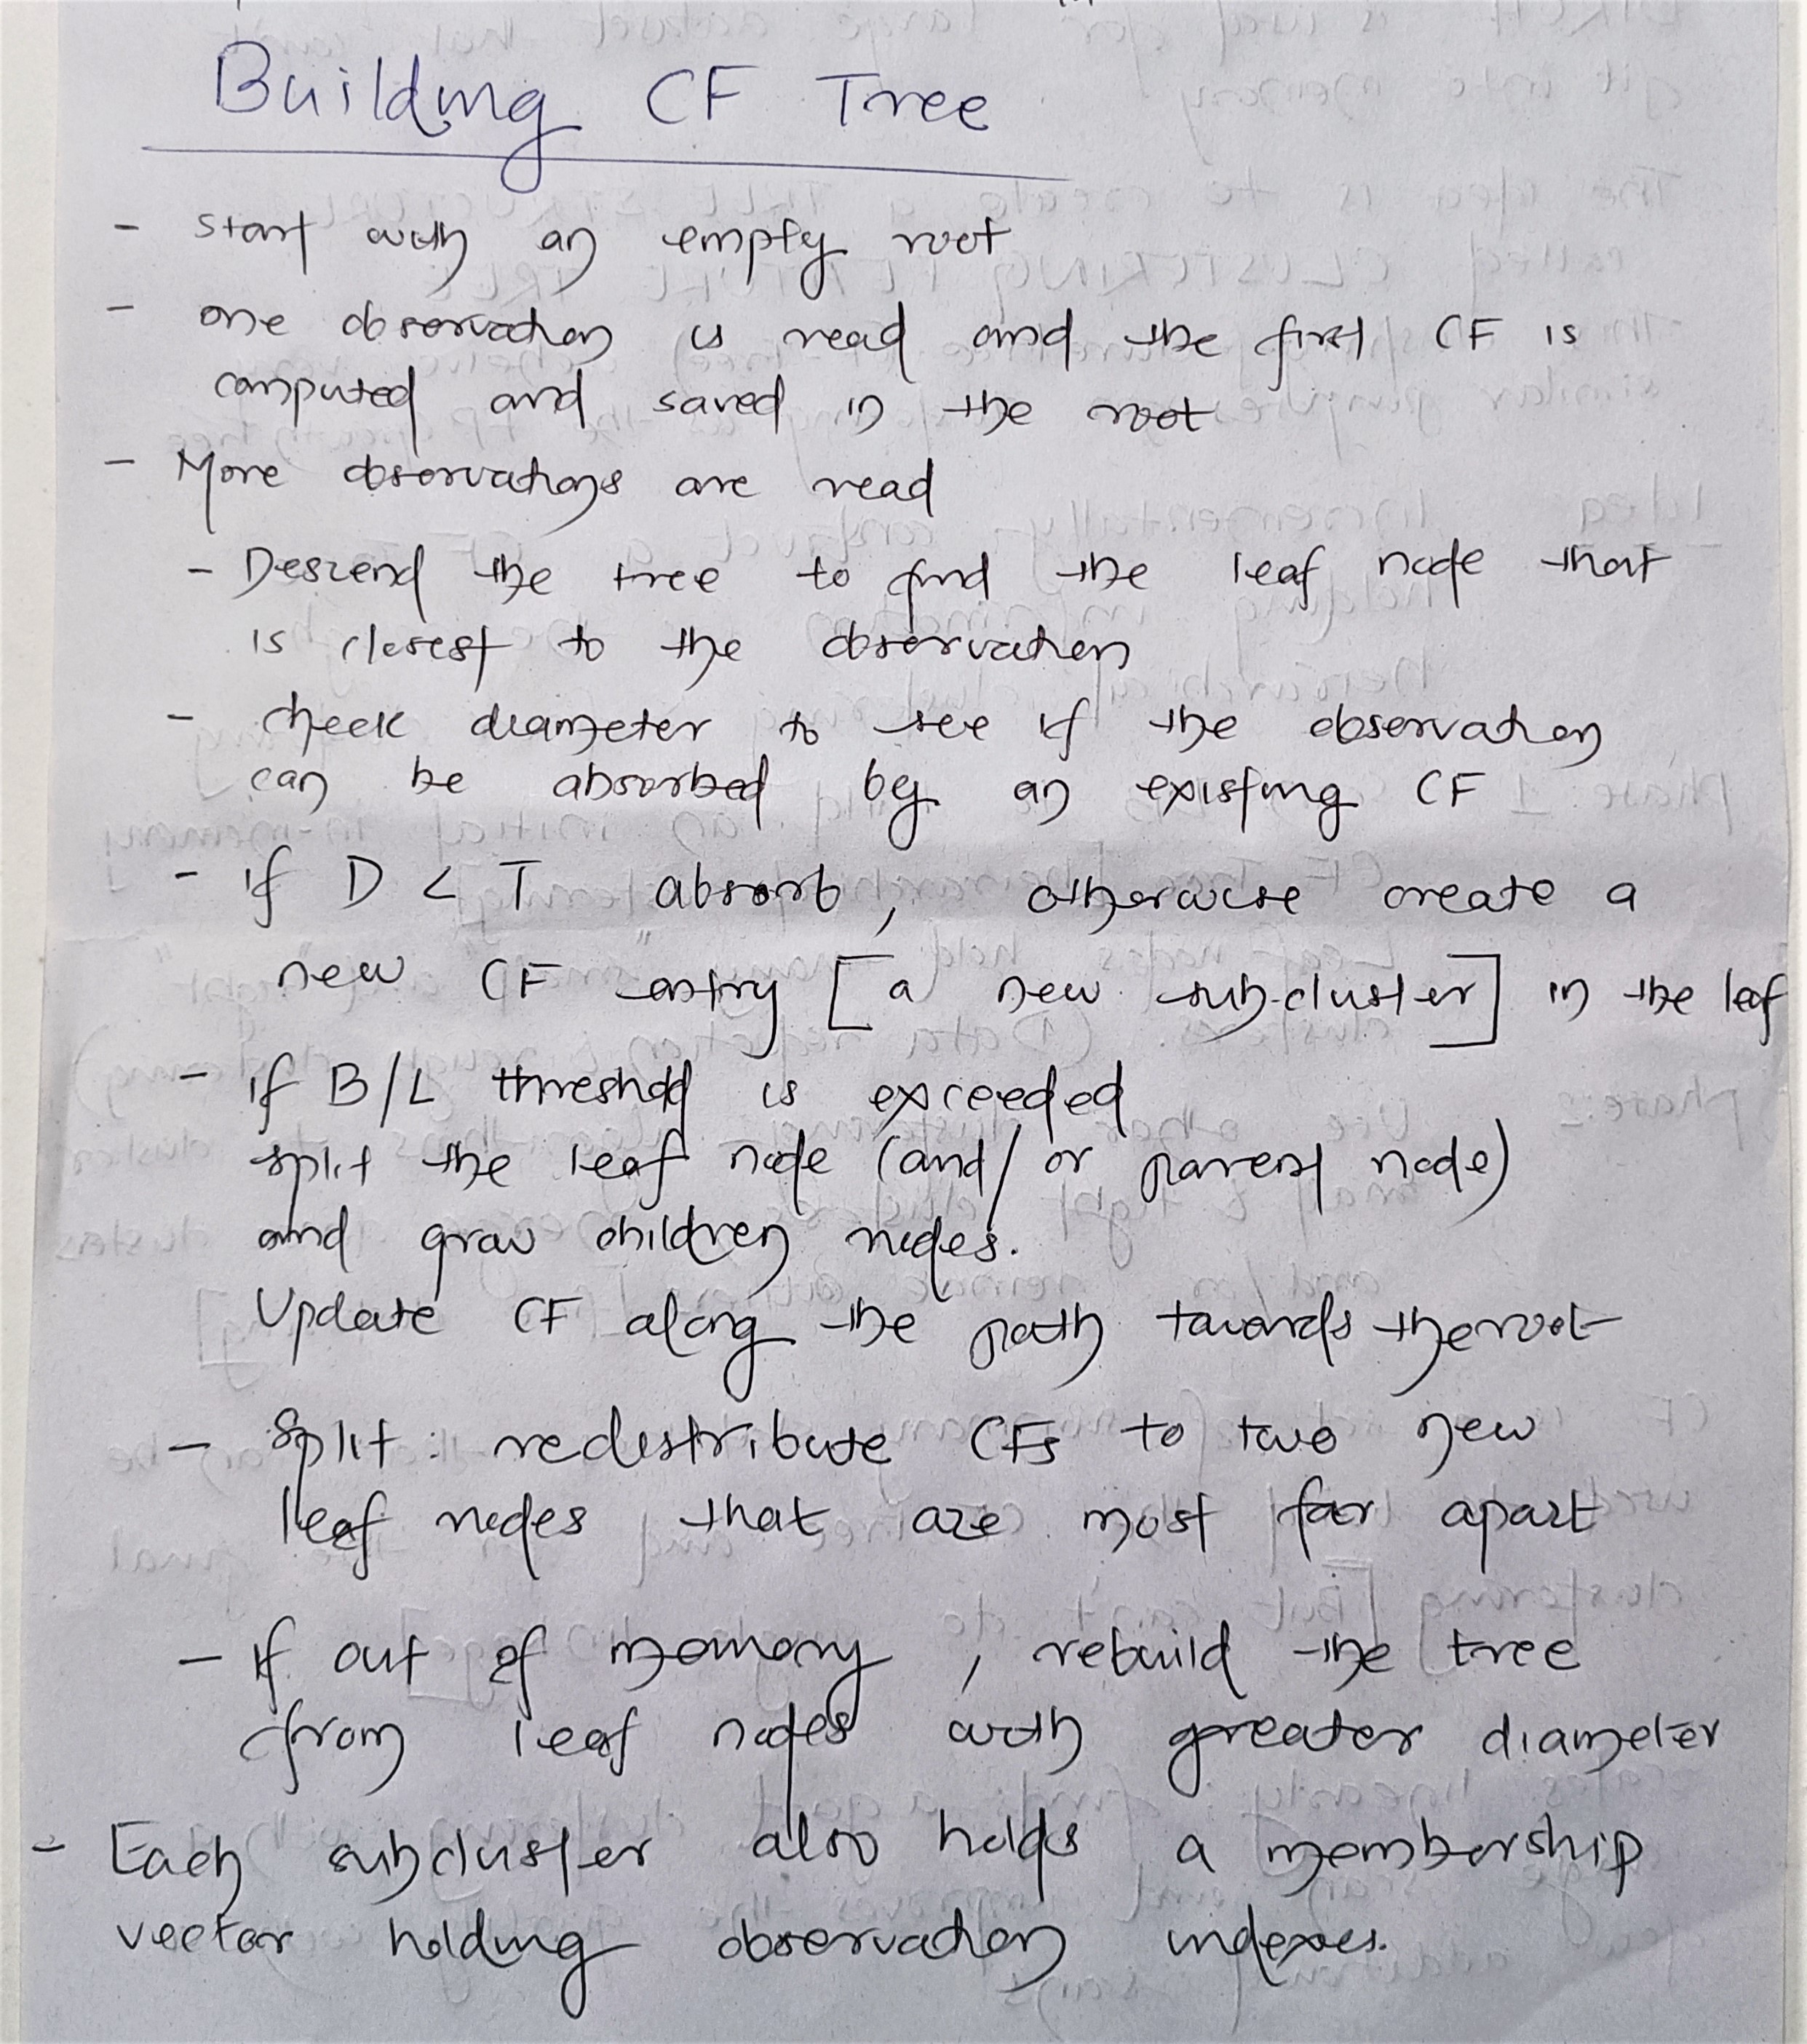 Building CF Tree
- start with an empty root
- one observation is read and the first CF is
computed and saved in the root
- More observations are read
- Descend the tree to find the leaf node that
is closest to the observation
- check diameter to see if the observation
can be absorbed by an existing CF
- if D < T absorb, otherwise create a
new CF entry [a new sub-cluster] in the leaf
- if B/L threshold is exceeded
split the leaf node (and/or parent node)
and grow children nodes.
Update CF along the path towards the root
- Split: redistribute CFs to two new
leaf nodes that are most far apart
- If out of memory, rebuild the tree
from leaf nodes with greater diameter
- Each subcluster also holds a membership
vector holding observation indexes.